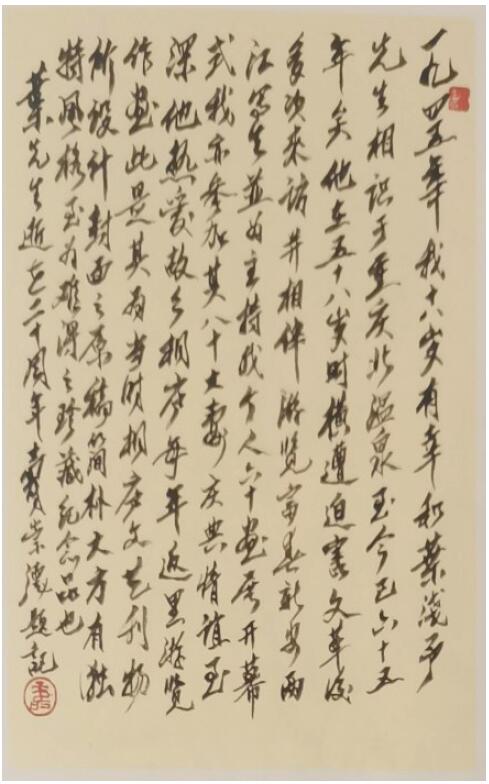 一九四五年我十八岁有幸和葉浅予
先生相识于重庆北温泉至今已六十五
年矣他在五十八岁时横遭迫害文革後
多次来访并相伴游览富春新安两
江写生并为主持我个人六十画展开幕
式我亦参加其八十大寿庆典情谊至
深他热爱故乡桐庐每年返里游览
作画此是其为当时桐庐文艺刊物
所设计封面之原稿简朴大方有独
特风格至为难得之珍藏纪念品也
葉先生逝世二十周年 崇德题记